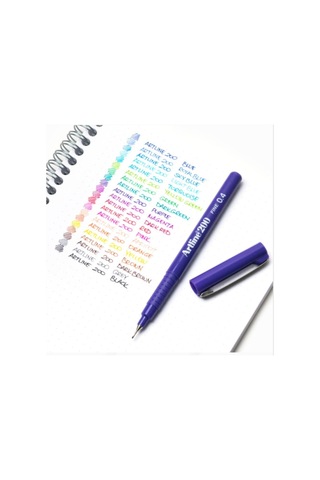 ARTLINE 200 BLUE
ARTLINE 200 ROYAL BLUE
ARTLINE 200 SKY BLUE
ARTLINE 200
ARTLINE 200 TURQUOISE
ARTLINE 200
ARTLINE 200 GREEN
ARTLINE 200 DARK GREEN
ARTLINE 200 PURPLE
ARTLINE 200 MAGENTA
ARTLINE 200 DARK RED
ARTLINE 200 RED
ARTLINE 200 PINK
ARTLINE 200
ARTLINE 200 ORANGE
ARTLINE 200 YELLOW
ARTLINE 200 BROWN
ARTLINE 200 DARK BROWN
ARTLINE 200 GREY
ARTLINE 200 BLACK
Artline 200 FINE 0.4